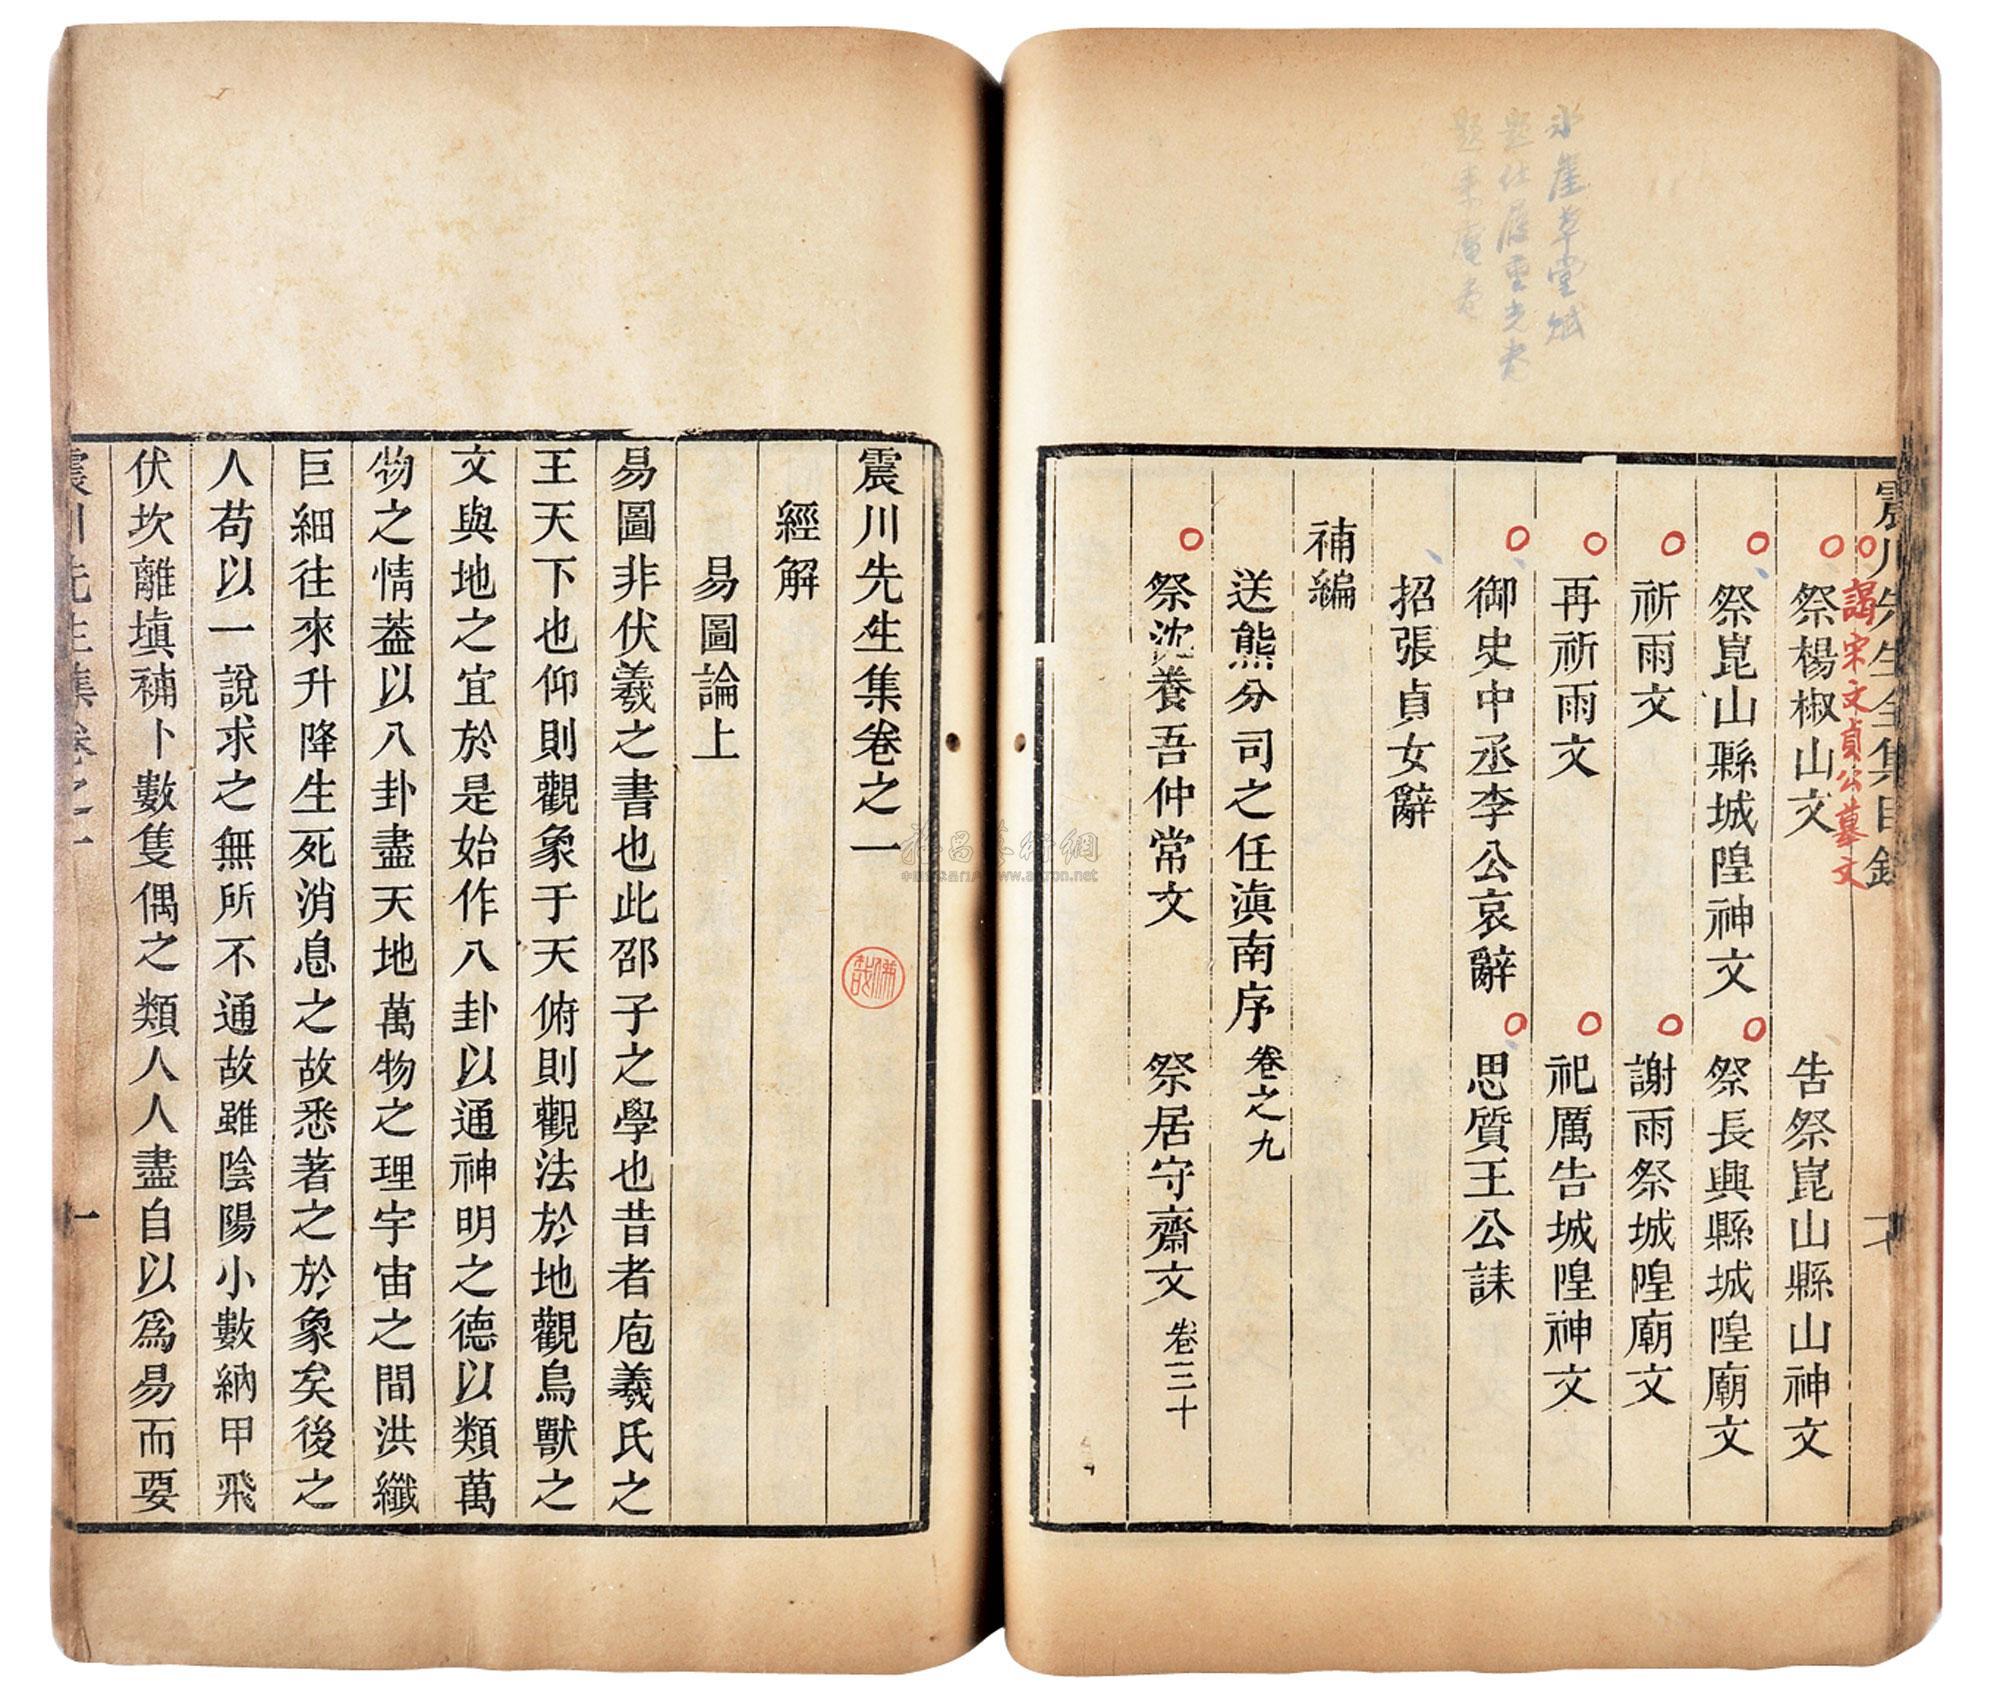 震川先生全集目錄
謁宋文貞公墓文
祭楊椒山文 告祭崑山縣山神文
祭崑山縣城隍神文 祭長興縣城隍廟文
祈雨文 謝雨祭城隍廟文
再祈雨文 祀厲告城隍神文
御史中丞李公哀辭 思質王公誄
招張貞女辭
補編
送熊分司之任滇南序 卷之九
祭沈養吾仲常文 祭居守齋文 卷三十
冰崖草堂賦
題仕履重光卷
震川先生集卷之一
經解
易圖論上
易圖非伏羲之書也此邵子之學也昔者庖羲氏之
王天下也仰則觀象于天俯則觀法於地觀鳥獸之
文與地之宜於是始作八卦以通神明之德以類萬
物之情葢以八卦盡天地萬物之理宇宙之間洪纖
巨細往來升降生死消息之故悉著之於象矣後之
人苟以一說求之無所不通故雖陰陽小數納甲飛
伏坎離塡補卜數隻偶之類人人盡自以爲易而要
震川先生集卷之一 一
www.artron.net